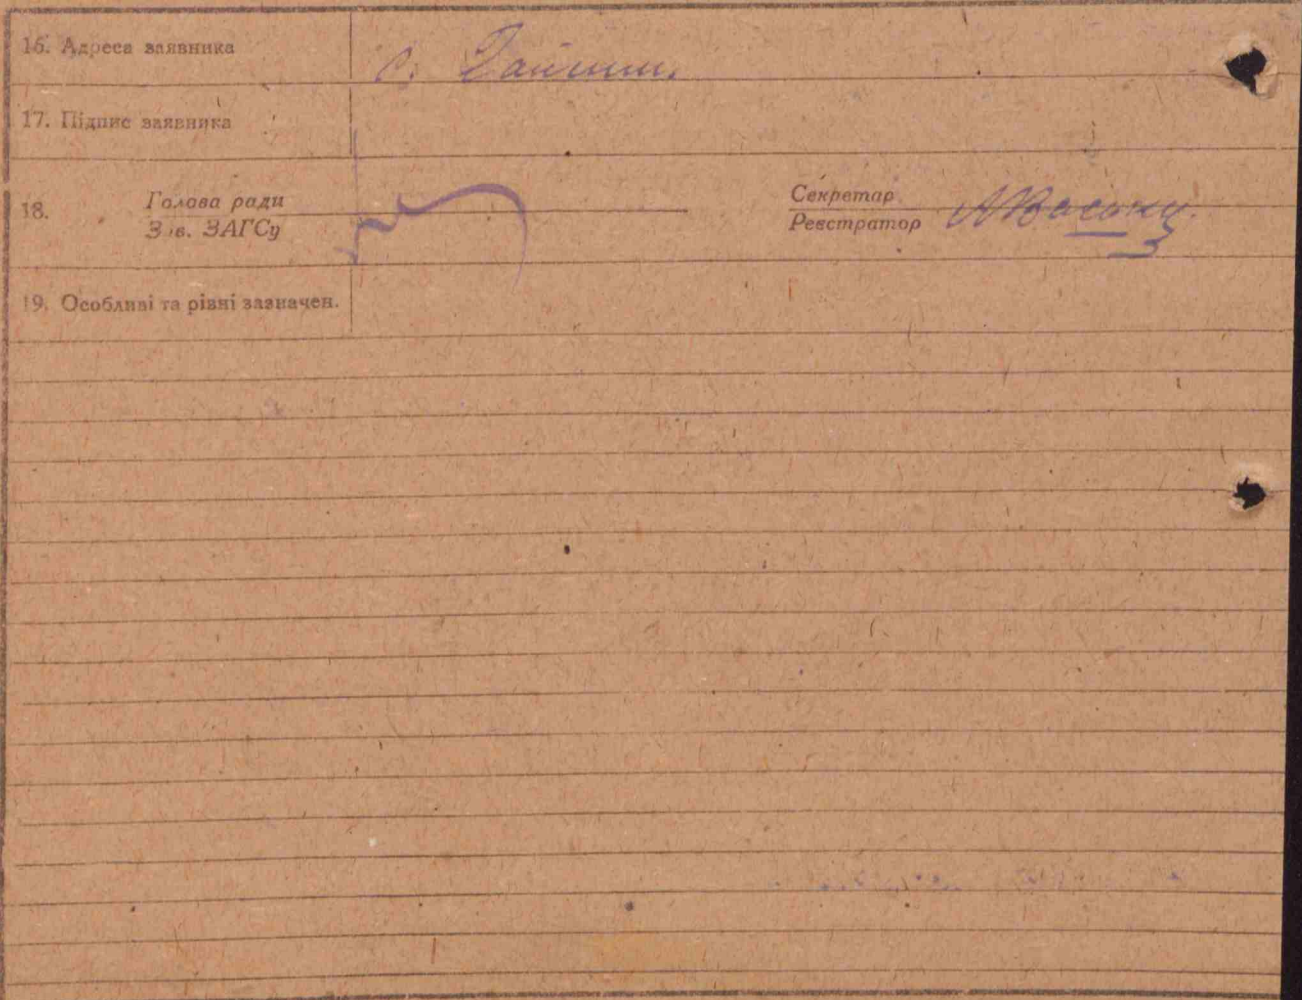 16. Адреса заявника с. Гайшин.
17. Підпис заявника
18. Голова ради Секретар
Зав. ЗАГСу Реєстратор
19. Особливі та рівні зазначен.